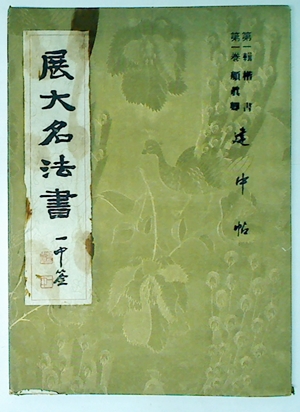 第一輯 楷書
第一卷 顔眞卿
建中帖
展大名法書
一中簽